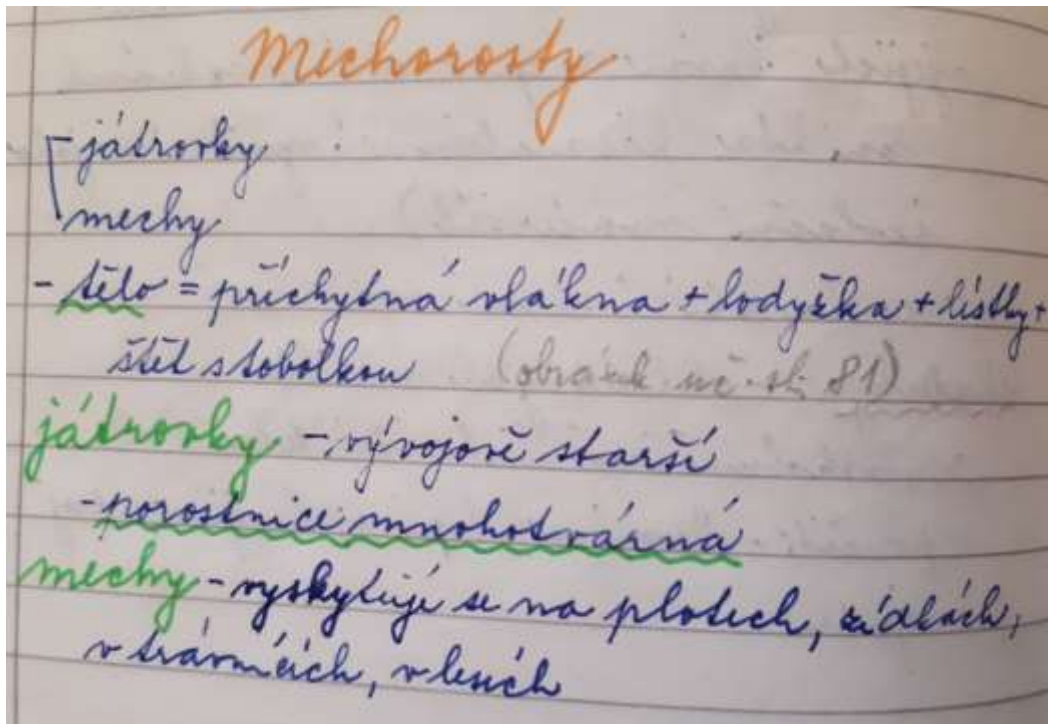 Mechorosty
- játrovky
mechy
- tělo = příchytná vlákna + lodyžka + lístky +
štět s tobolkou (obrázek uč. str. 81)
játrovky - vývojově starší
- porostnice mnohotvárná
mechy - vyskytují se na plotech, zídkách,
v trávnících, v lesích